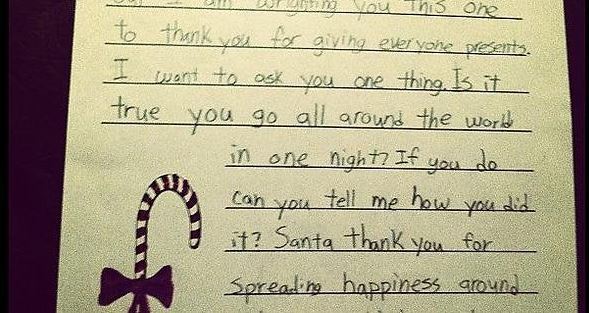 I am wrighting you this one
to thank you for giving everyone presents.
I want to ask you one thing. Is it
true you go all around the world
in one night? If you do
can you tell me how you did
it? Santa thank you for
spreading happiness around